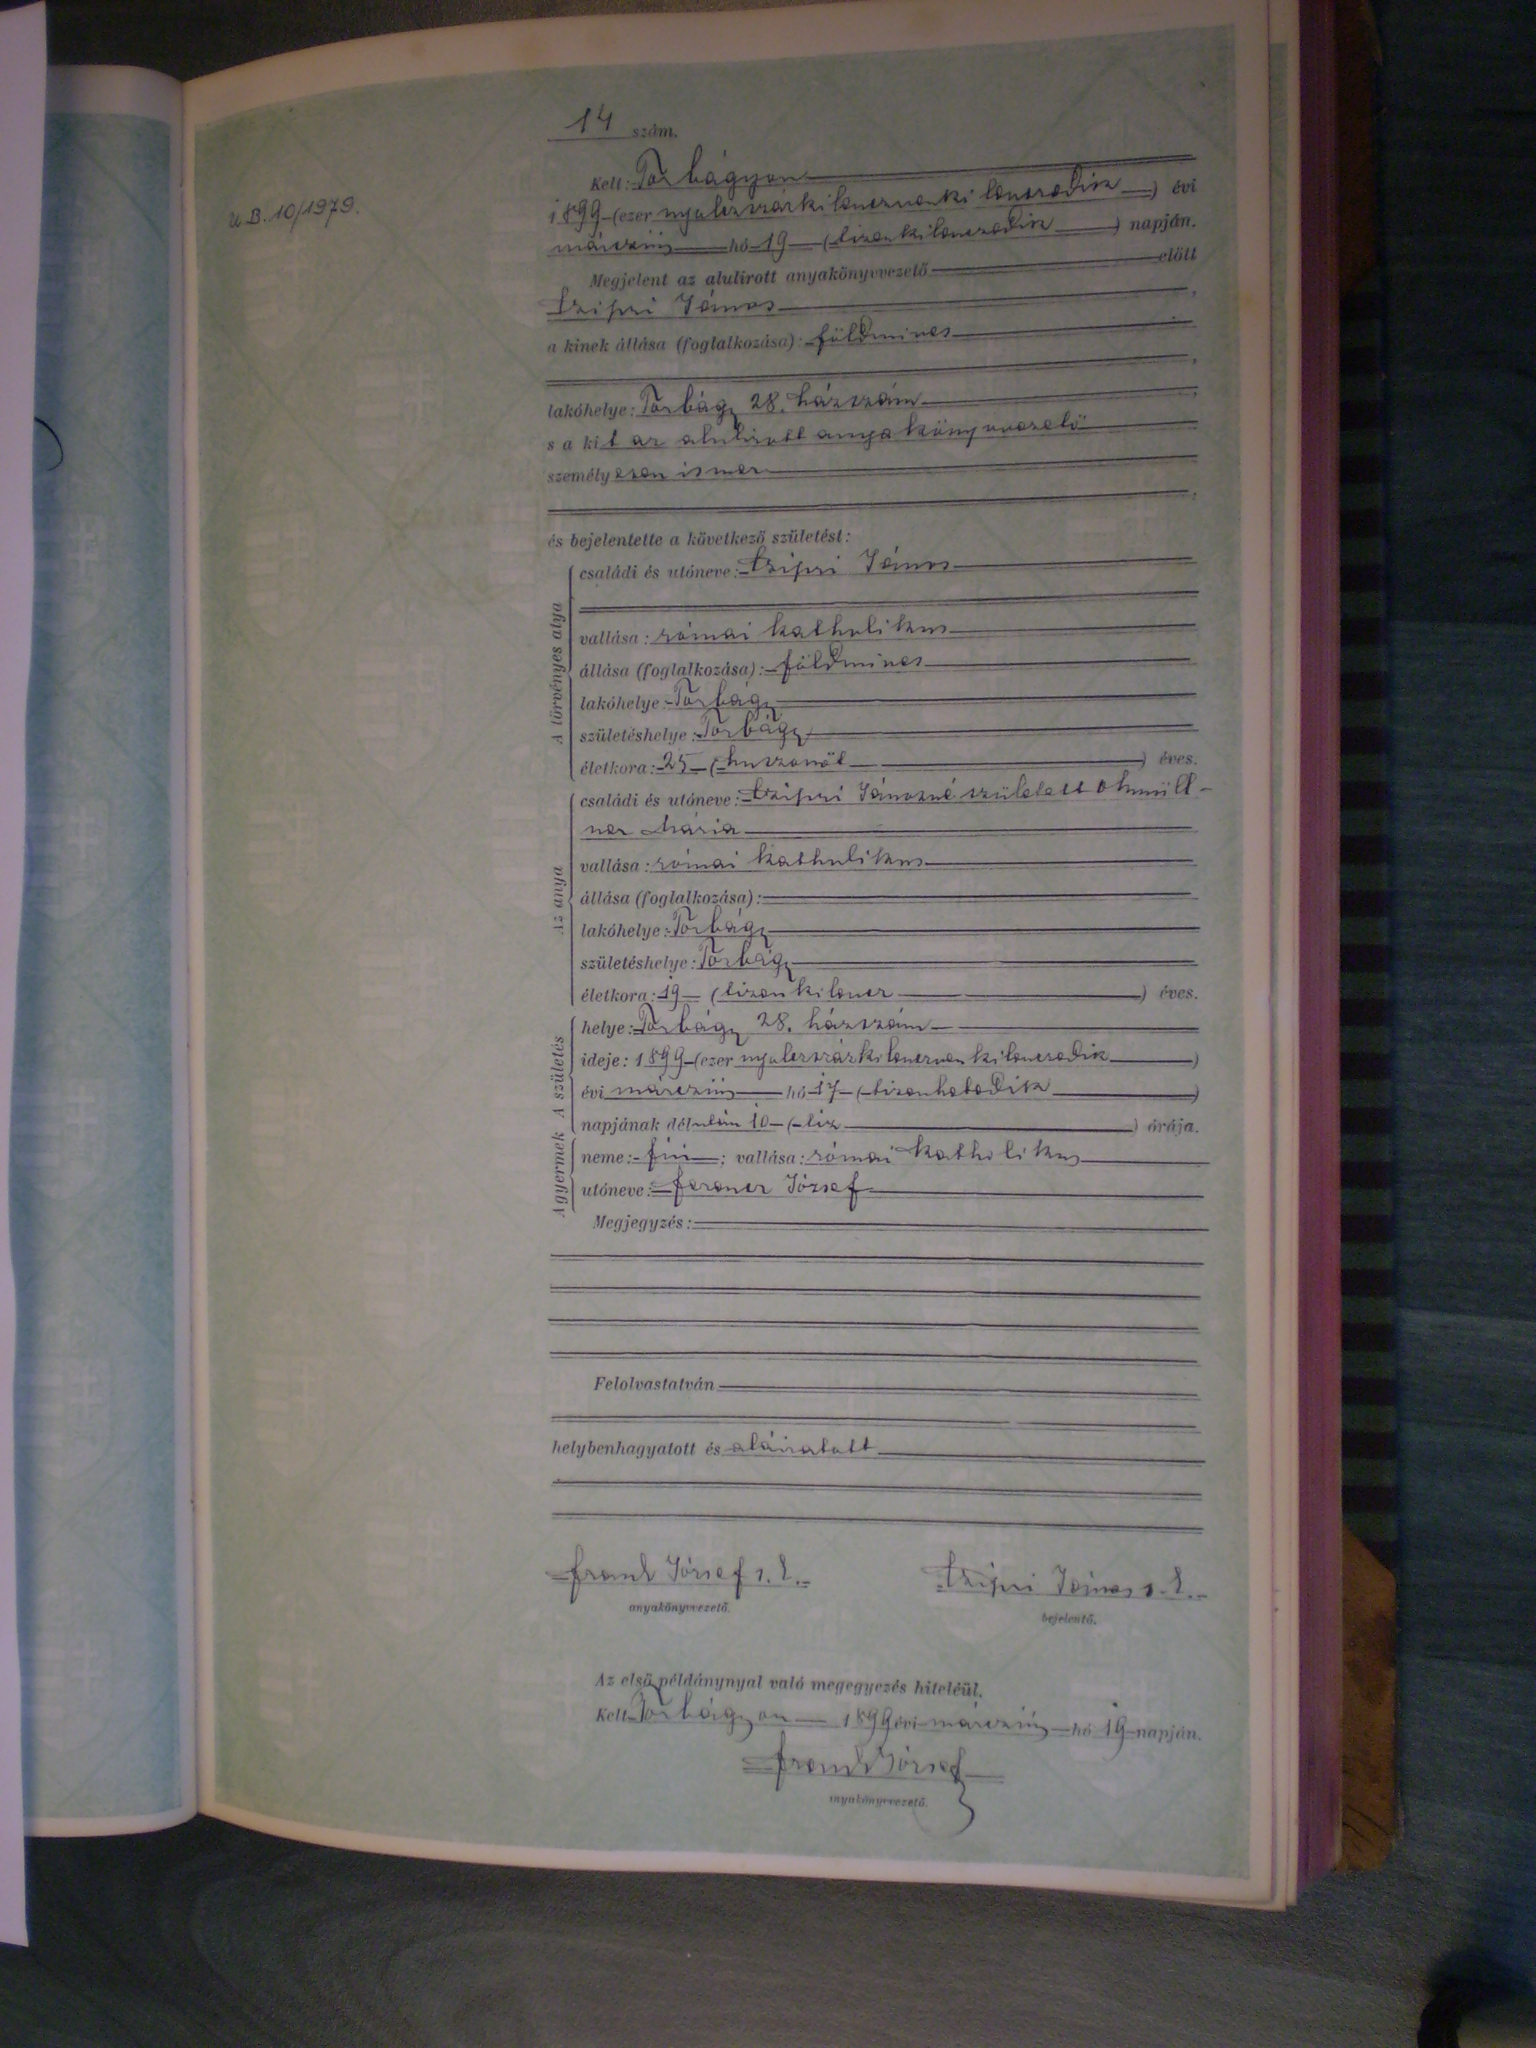 14 szám.
U B. 10/1979.
Kelt: Torbágyon
1899 (ezer nyolczszázkilenczvenkilenczedik) évi
márczius hó 19 (tizenkilenczedik) napján.
Megjelent az alulirott anyakönyvvezető előtt
Czipri János,
a kinek állása (foglalkozása): földmives
lakóhelye: Torbágy 28. házszám
s a kit az alulirott anyakönyvvezető
személyesen ismer
és bejelentette a következő születést:
A törvényes atya
családi és utóneve: Czipri János
vallása: római katholikus
állása (foglalkozása): földmives
lakóhelye: Torbágy
születéshelye: Torbágy
életkora: 25 (huszonöt) éves.
Az anya
családi és utóneve: Czipri Jánosné született Ohmüll-
ner Mária
vallása: római katholikus
állása (foglalkozása):
lakóhelye: Torbágy
születéshelye: Torbágy
életkora: 19 (tizenkilencz) éves.
A születés
helye: Torbágy 28. házszám
ideje: 1899 (ezer nyolczszázkilenczvenkilenczedik)
évi márczius hó 17 (tizenhetedik)
napjának délután 10 (tiz) órája.
A gyermek
neme: fiú; vallása: római katholikus
utóneve: Ferencz József
Megjegyzés:
Felolvastatván
helybenhagyatott és aláiratott
Frank József s. k. Czipri János s. k.
anyakönyvvezető. bejelentő.
Az első példánynyal való megegyezés hiteléül.
Kelt Torbágyon 1899 évi márczius hó 19 napján.
Frank József
anyakönyvvezető.